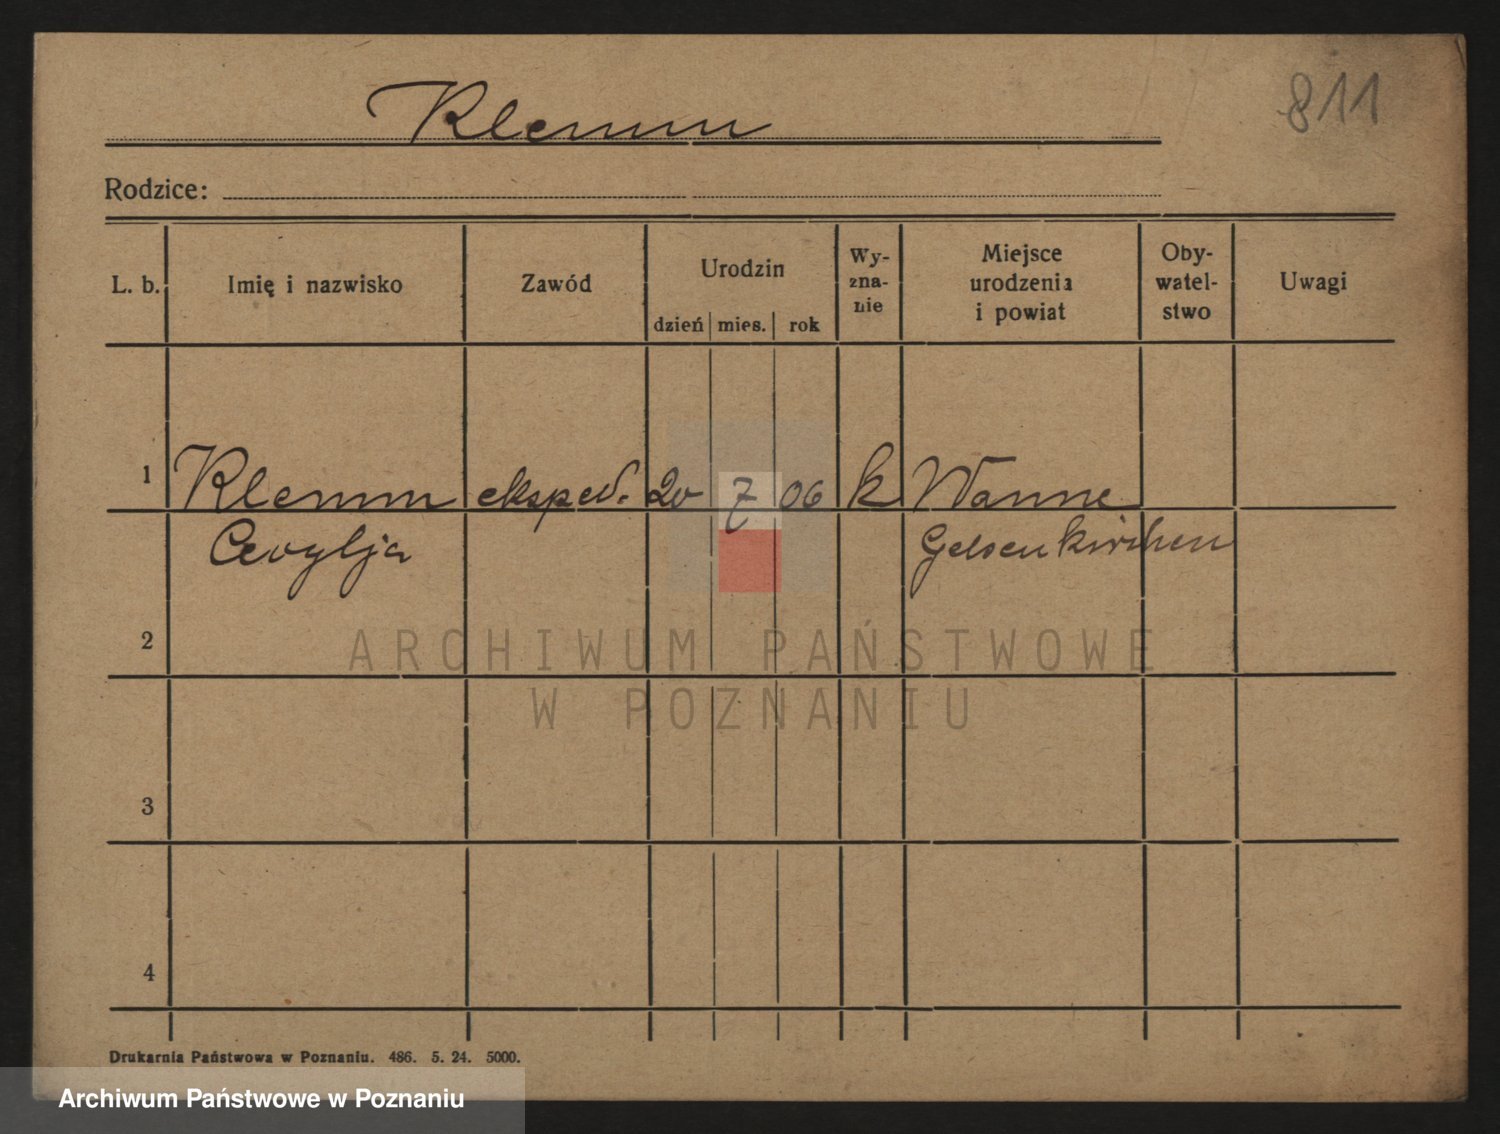 Klemm
811
Rodzice:
L. b. Imię i nazwisko Zawód Urodzin dzień mies. rok Wy-zna-nie Miejsce urodzenia i powiat Oby-watel-stwo Uwagi
1 Klemm eksped. 20 7 06 k Wanne
Gelsenkirchen
2
ARCHIWUM PAŃSTWOWE
W POZNANIU
3
4
Drukarnia Państwowa w Poznaniu. 486. 5. 24. 5000.
Archiwum Państwowe w Poznaniu